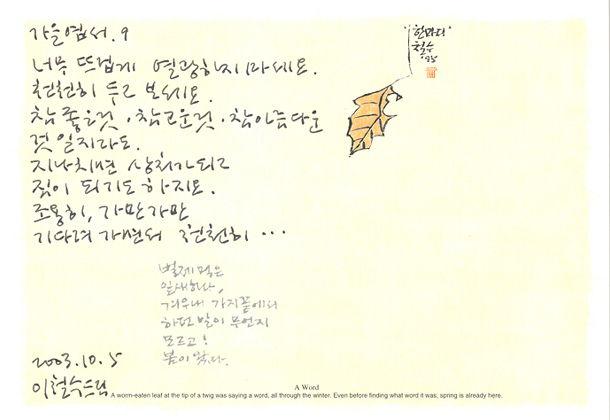 가을엽서. 9
너무 뜨겁게 열광하지 마세요.
천천히 두고 보세요.
참 좋은것 · 참 고운것 · 참 아름다운
것 일지라도.
지나치면 상처가 되고
짐이 되기도 하지요.
조용히, 가만가만
기다려 가면서 천천히 ...
벌레먹은
잎새하나,
겨우내 가지끝에서
하던 말이 무언지
모르고!
봄이 왔다.
2003.10.5
이철수드림
"한마디"
철수
'95
A Word
A worm-eaten leaf at the tip of a twig was saying a word, all through the winter. Even before finding what word it was, spring is already here.